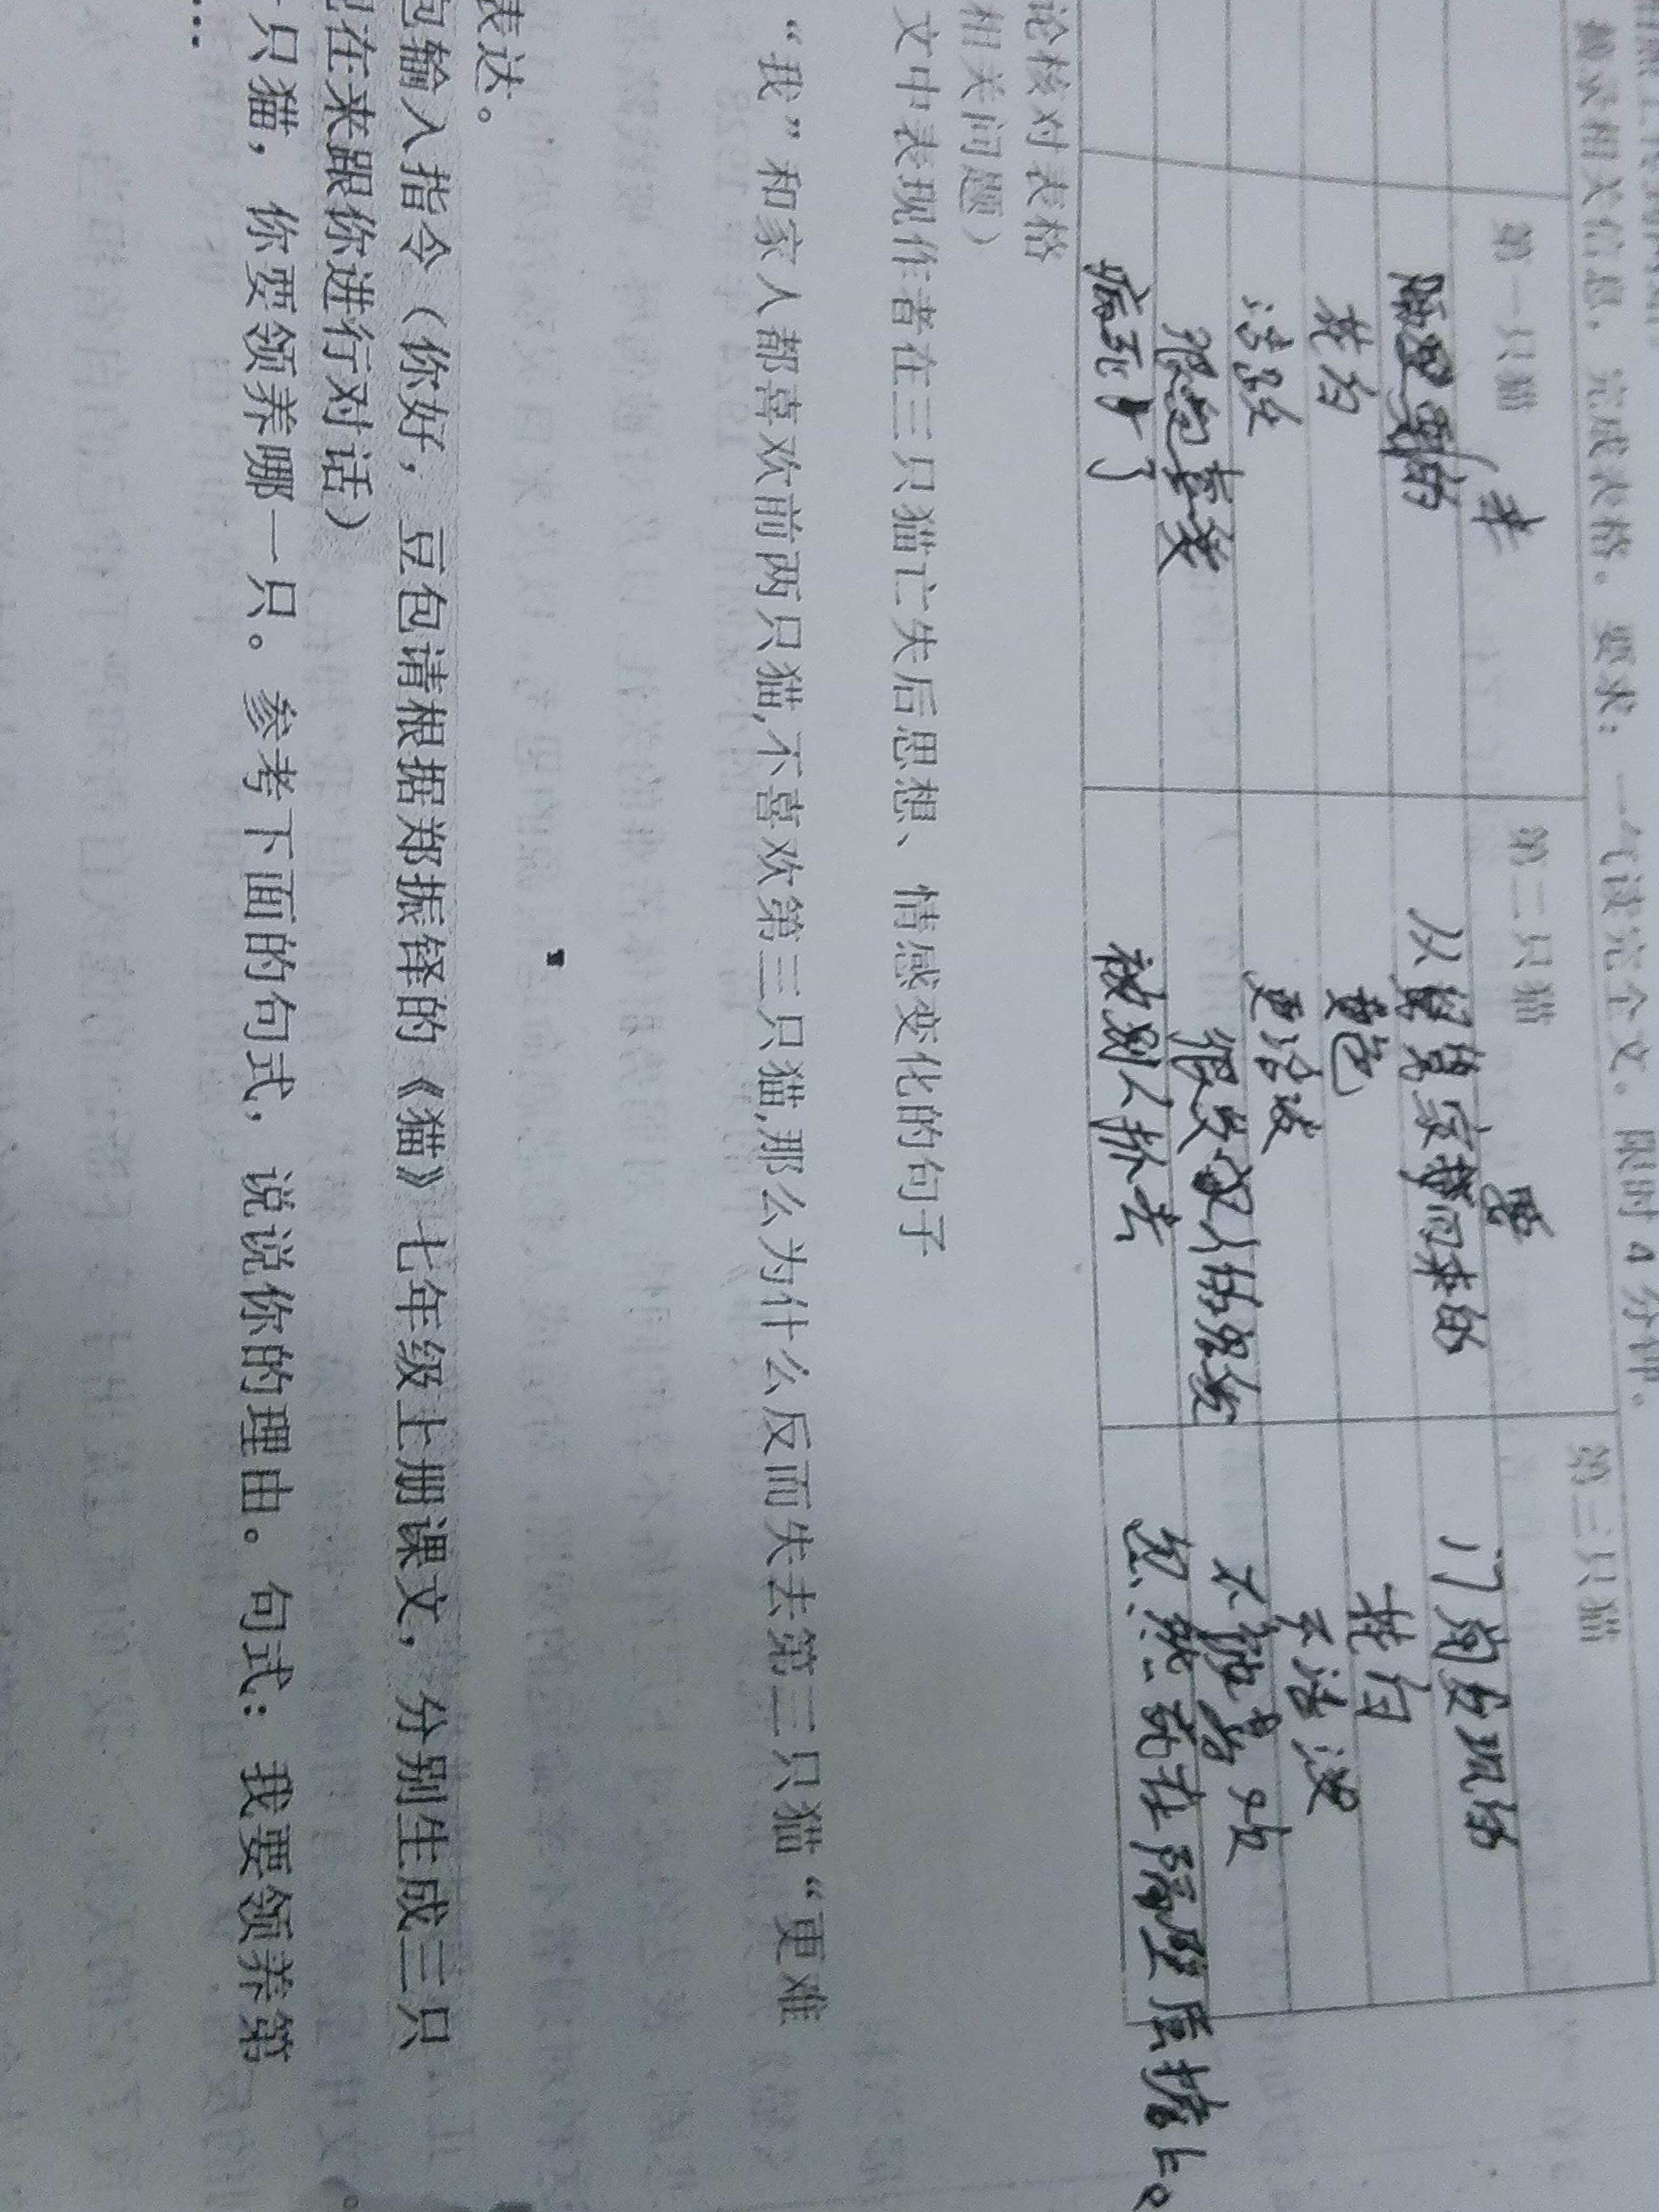 摘录相关信息，完成表格。要求：一气读完全文。限时 4 分钟。
第一只猫 第二只猫 第三只猫
隔壁要的 从舅舅家带回来的 门口发现的
花白 黄色 花白
活泼 更活泼 不活泼
很喜欢 被别人捡去 不喜欢
病死了 忽然死在隔壁屋挤上。
论核对表格
相关问题）
文中表现作者在三只猫亡失后思想、情感变化的句子
“我”和家人都喜欢前两只猫,不喜欢第三只猫,那么为什么反而失去第三只猫“更难
表达。
包输入指令（你好，豆包请根据郑振铎的《猫》七年级上册课文，分别生成三只
现在来跟你进行对话）
只猫，你要领养哪一只。参考下面的句式，说说你的理由。句式：我要领养第
…